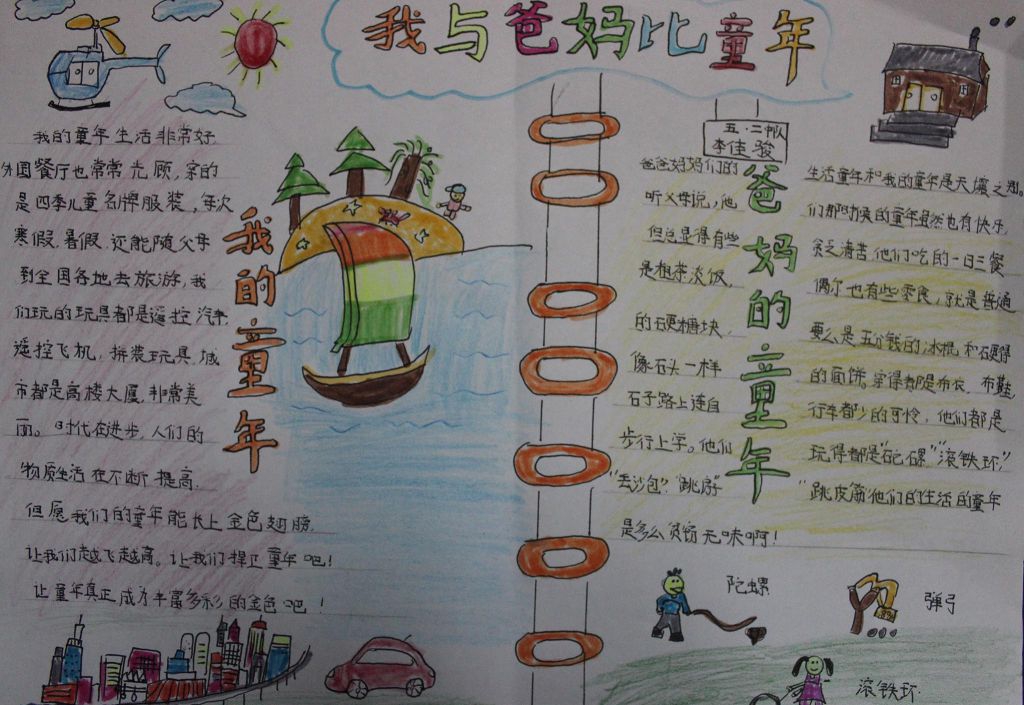 我与爸妈比童年
五·二中队
李佳骏
我的童年
我的童年生活非常好,
外国餐厅也常常光顾,穿的
是四季儿童名牌服装,每次
寒假,暑假,还能随父母
到全国各地去旅游,我
们玩的玩具都是遥控汽车,
遥控飞机,拼装玩具,城
市都是高楼大厦,非常美
丽。时代在进步,人们的
物质生活在不断提高.
但愿我们的童年能长上金色翅膀.
让我们越飞越高。让我们捍卫童年吧!
让童年真正成为丰富多彩的金色吧!
爸妈的童年
爸爸妈妈们的 生活童年和我的童年是天壤之别。
听父母说,他 们那时候的童年虽然也有快乐,
但总显得有些 贫乏清苦他们吃的一日三餐
是粗茶淡饭, 偶尔也有些零食,就是普通
的硬糖块, 要么是五分钱的冰棍和硬得
像石头一样 的面饼,穿得都是布衣,布鞋,
石子路上连自 行车都少的可怜,他们都是
步行上学。他们 玩得都是“砣螺”“滚铁环,”
“丢沙包”,“跳房” “跳皮筋”他们的生活的童年
是多么贫穷无味啊!
陀螺
弹弓
滚铁环.